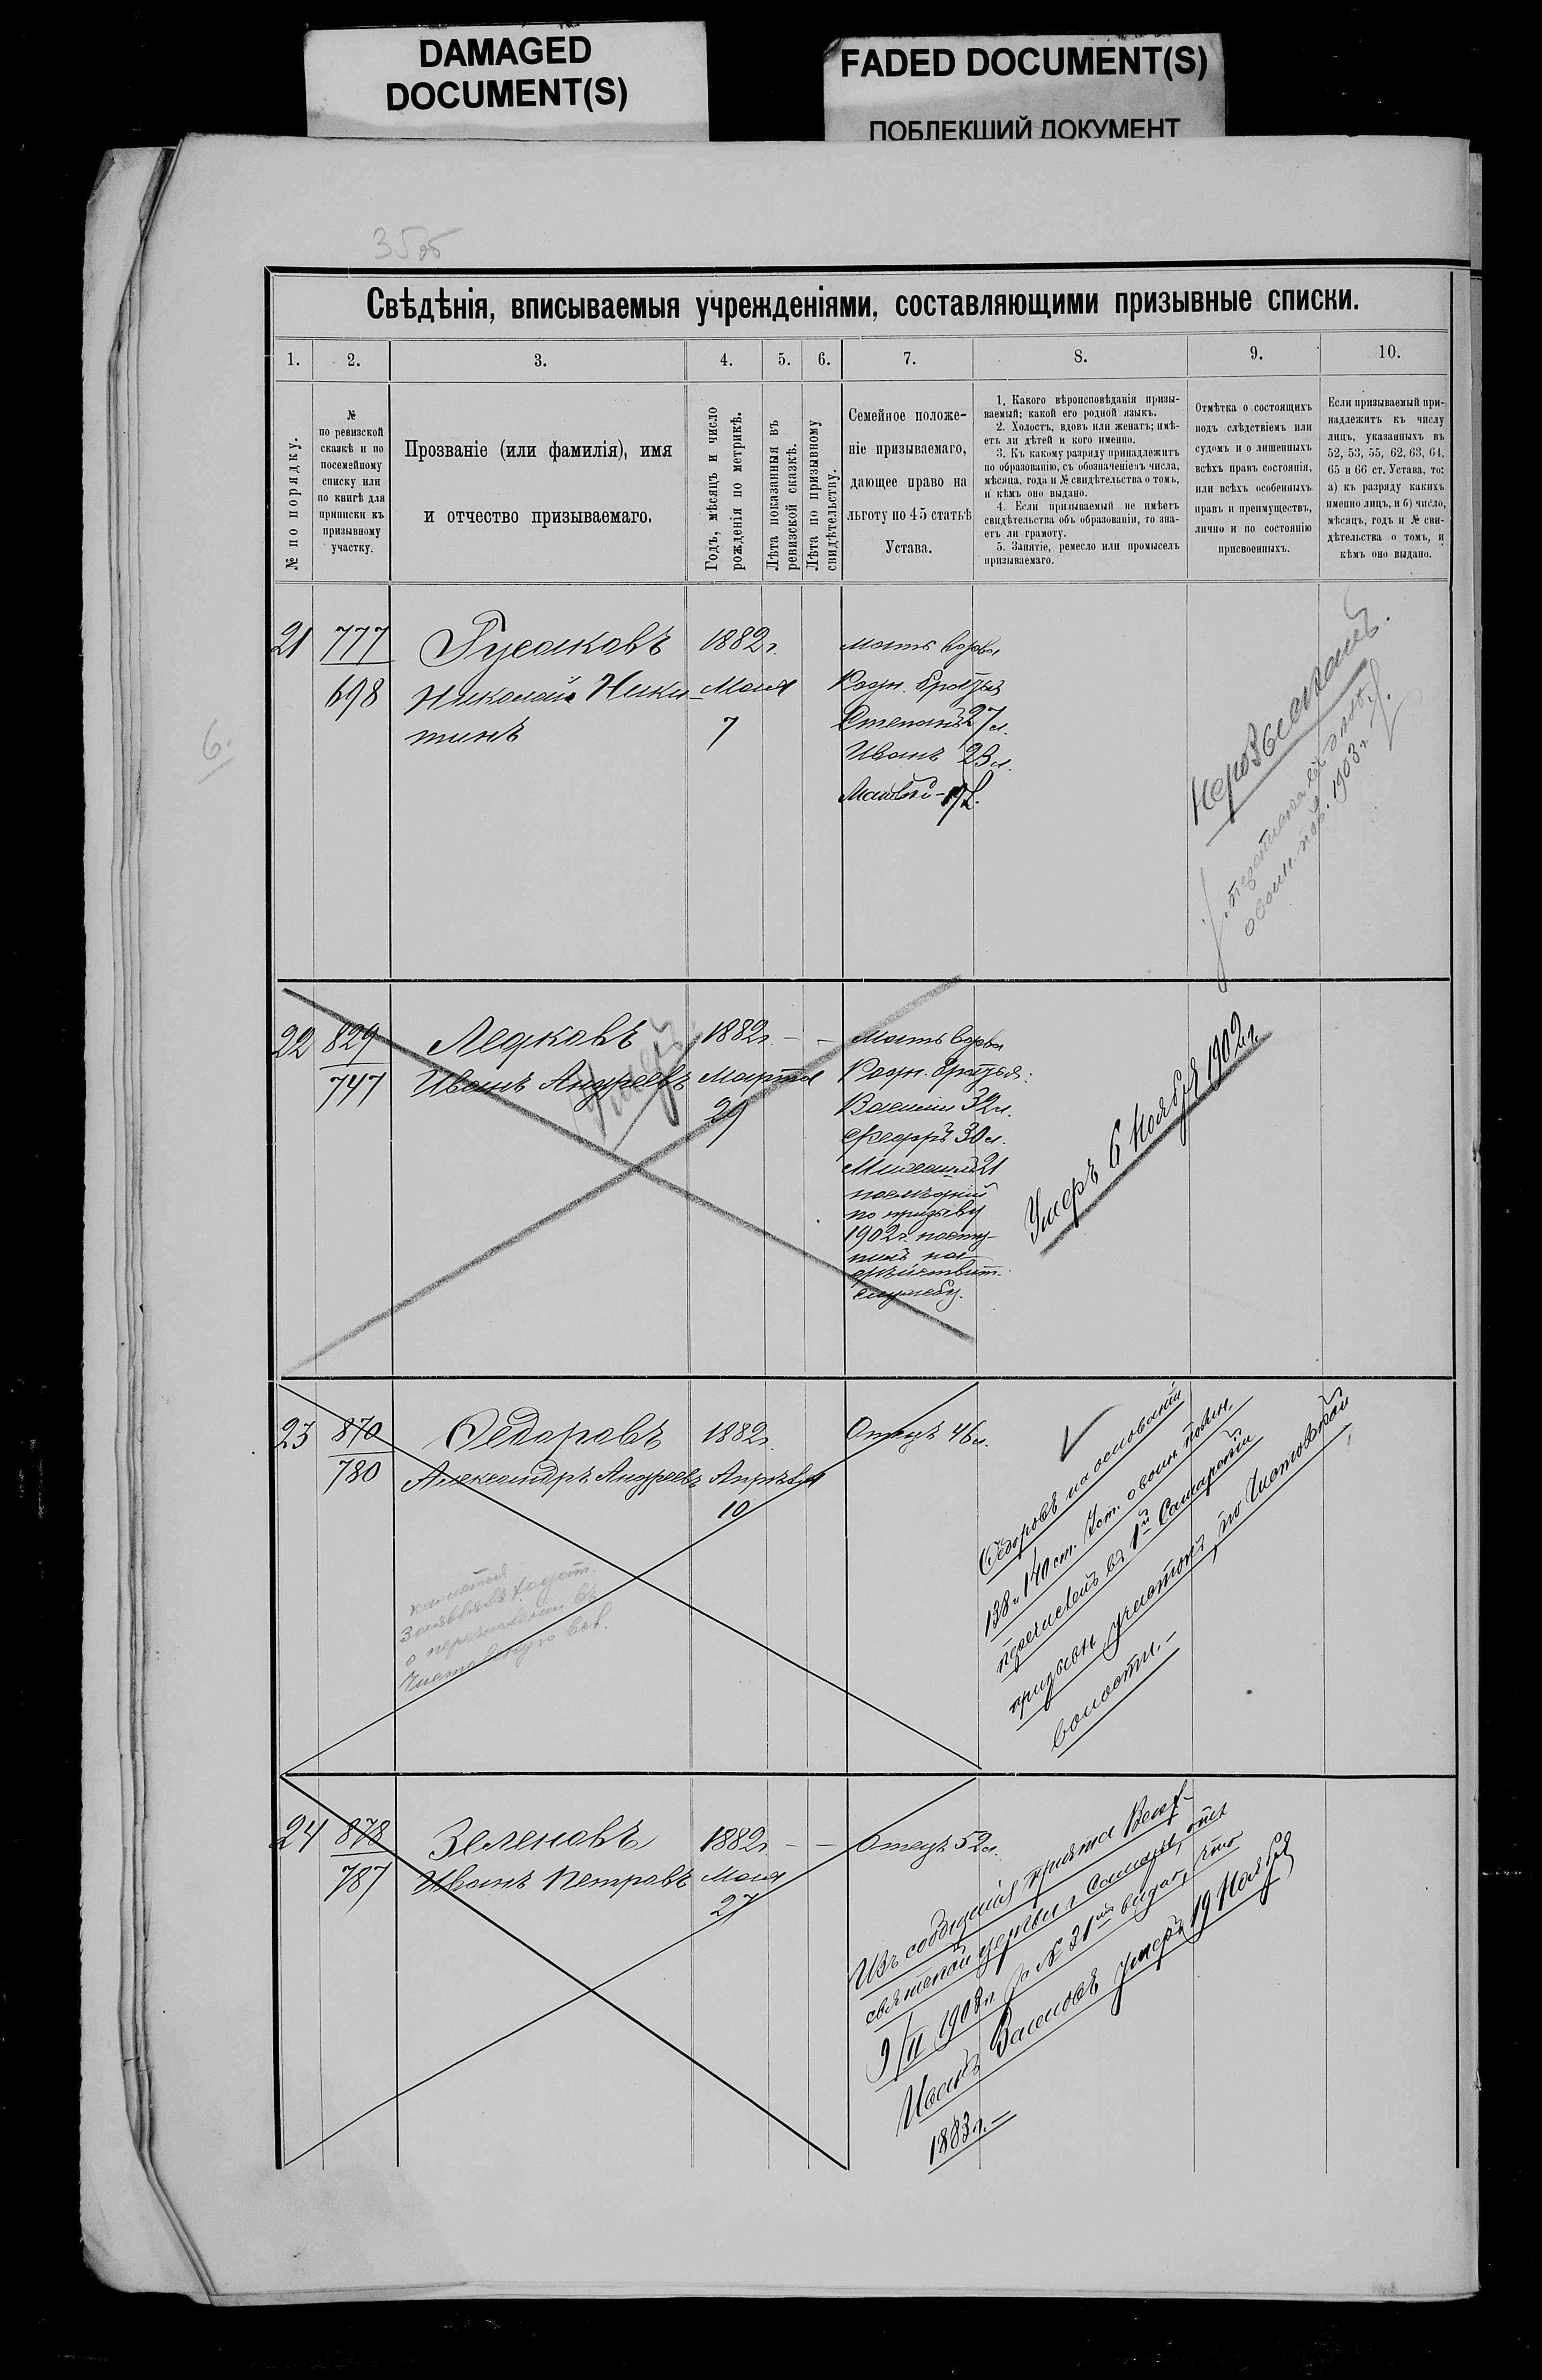 DAMAGED
DOCUMENT(S)
FADED DOCUMENT(S)
ПОБЛЕКШИЙ ДОКУМЕНТ
35об
Свѣдѣнія, вписываемыя учрежденіями, составляющими призывные списки.
1.
2.
3.
4.
5.
6.
7.
8.
9.
10.
№ по порядку.
№
по ревизской
сказкѣ и по
посемейному
списку или
по книгѣ для
приписки къ
призывному
участку.
Прозваніе (или фамилія), имя
и отчество призываемаго.
Годъ, мѣсяцъ и число
рожденія по метрикѣ.
Лѣта показанныя въ
ревизской сказкѣ.
Лѣта по призывному
свидѣтельству.
Семейное положе-
ніе призываемаго,
дающее право на
льготу по 45 статьѣ
Устава.
1. Какого вѣроисповѣданія призы-
ваемый; какой его родной языкъ.
2. Холостъ, вдовъ или женатъ; имѣ-
етъ ли дѣтей и кого именно.
3. Къ какому разряду принадлежитъ
по образованію, съ обозначеніемъ числа,
мѣсяца, года и № свидѣтельства о томъ,
и кѣмъ оно выдано.
4. Если призываемый не имѣетъ
свидѣтельства объ образованіи, то зна-
етъ ли грамоту.
5. Занятіе, ремесло или промыселъ
призываемаго.
Отмѣтка о состоящихъ
подъ слѣдствіемъ или
судомъ и о лишенныхъ
всѣхъ правъ состоянія,
или всѣхъ особенныхъ
правъ и преимуществъ,
лично и по состоянію
присвоенныхъ.
Если призываемый при-
надлежитъ къ числу
лицъ, указанныхъ въ
52, 53, 55, 62, 63, 64,
65 и 66 ст. Устава, то:
а) къ разряду какихъ
именно лицъ, и б) число,
мѣсяцъ, годъ и № сви-
дѣтельства о томъ, и
кѣмъ оно выдано.
6.
21
777
698
Русаковъ
Николай Ники-
тинъ
1882г.
Мая
7
Мать вдова
Родн. братья
Степанъ 27 л.
Иванъ 23 л.
Матвѣй -
о воин. пов. 1903 г.
22
829
747
Ледковъ
Иванъ Андреевъ
Умеръ
1882г. - -
Марта
29
Мать вдова
Родн. братья:
Василій 32 л.
Федоръ 30 л.
Михаилъ 21
послѣдній
по призыву
1902г. посту-
пилъ на
дѣйствит.
службу.
Умеръ 6 Ноября 1902 г.
23
870
780
Ѳедоровъ
Александръ Андреевъ
1882г.
Апрѣля
10
Отецъ 46 л.
о перечисленіи въ
вол.
Ѳедоровъ на основаніи
138 и 140 ст. Уст. о воин. повин.
перечисленъ въ 1й Самарскій
призывн участокъ, по
волости. -
24
878
787
Зеленовъ
Иванъ Петровъ
1882г. - -
Мая
27
Отецъ 52 л.
Изъ сообщенія причта
святской церкви г. Самары, отъ
9/II 1903 г. за № 31 видно, что
Иванъ умеръ 19 Ноября
1883 г. -